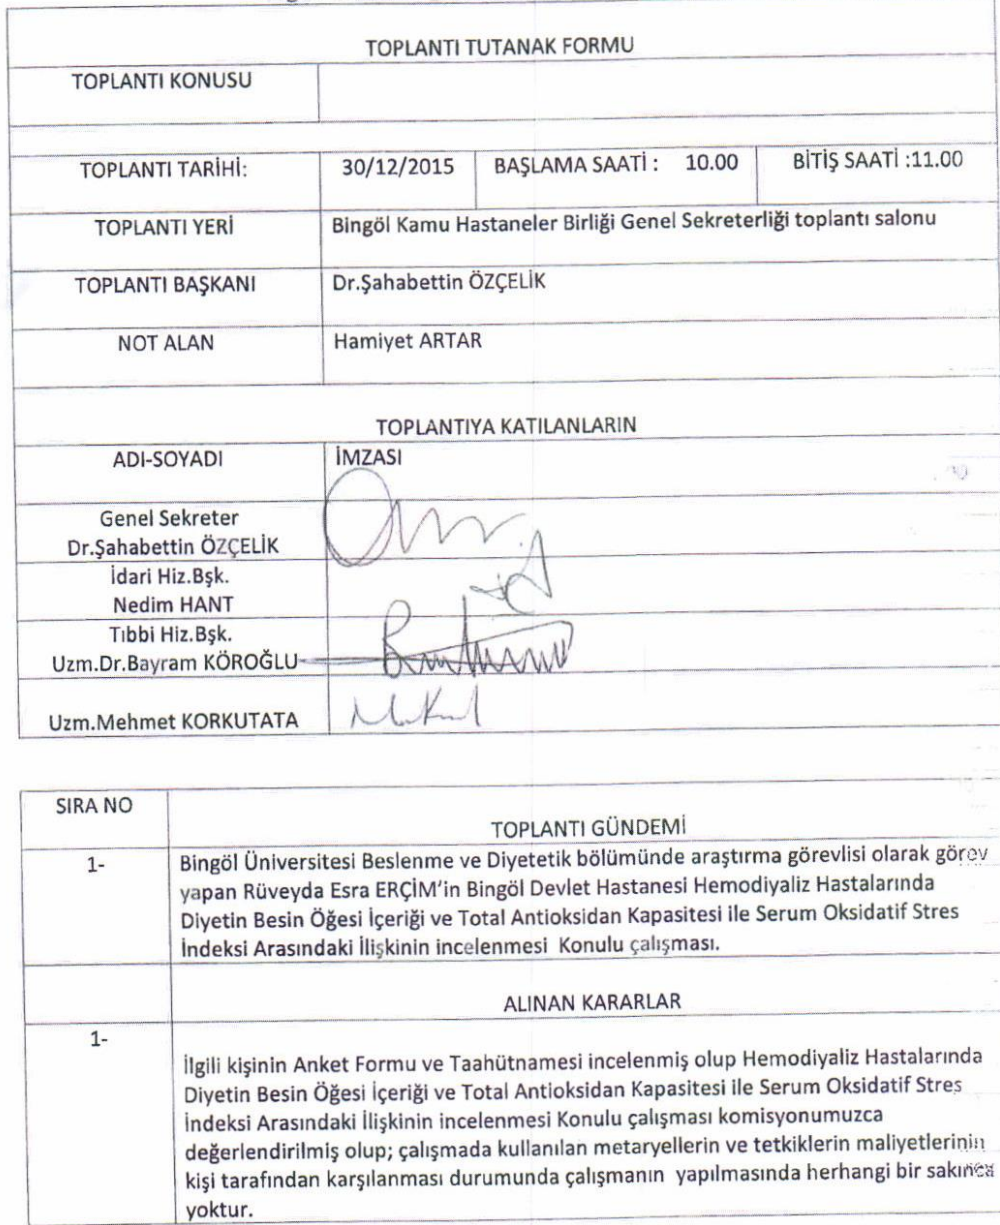 TOPLANTI TUTANAK FORMU
TOPLANTI KONUSU
TOPLANTI TARİHİ: 30/12/2015 BAŞLAMA SAATİ : 10.00 BİTİŞ SAATİ :11.00
TOPLANTI YERİ Bingöl Kamu Hastaneler Birliği Genel Sekreterliği toplantı salonu
TOPLANTI BAŞKANI Dr.Şahabettin ÖZÇELİK
NOT ALAN Hamiyet ARTAR
TOPLANTIYA KATILANLARIN
ADI-SOYADI İMZASI
Genel Sekreter
Dr.Şahabettin ÖZÇELİK
İdari Hiz.Bşk.
Nedim HANT
Tıbbi Hiz.Bşk.
Uzm.Dr.Bayram KÖROĞLU
Uzm.Mehmet KORKUTATA
SIRA NO
TOPLANTI GÜNDEMİ
1- Bingöl Üniversitesi Beslenme ve Diyetetik bölümünde araştırma görevlisi olarak görev
yapan Rüveyda Esra ERÇİM'in Bingöl Devlet Hastanesi Hemodiyaliz Hastalarında
Diyetin Besin Öğesi İçeriği ve Total Antioksidan Kapasitesi ile Serum Oksidatif Stres
İndeksi Arasındaki İlişkinin incelenmesi Konulu çalışması.
ALINAN KARARLAR
1-
İlgili kişinin Anket Formu ve Taahütnamesi incelenmiş olup Hemodiyaliz Hastalarında
Diyetin Besin Öğesi İçeriği ve Total Antioksidan Kapasitesi ile Serum Oksidatif Stres
İndeksi Arasındaki İlişkinin incelenmesi Konulu çalışması komisyonumuzca
değerlendirilmiş olup; çalışmada kullanılan metaryellerin ve tetkiklerin maliyetlerinin
kişi tarafından karşılanması durumunda çalışmanın yapılmasında herhangi bir sakınca
yoktur.